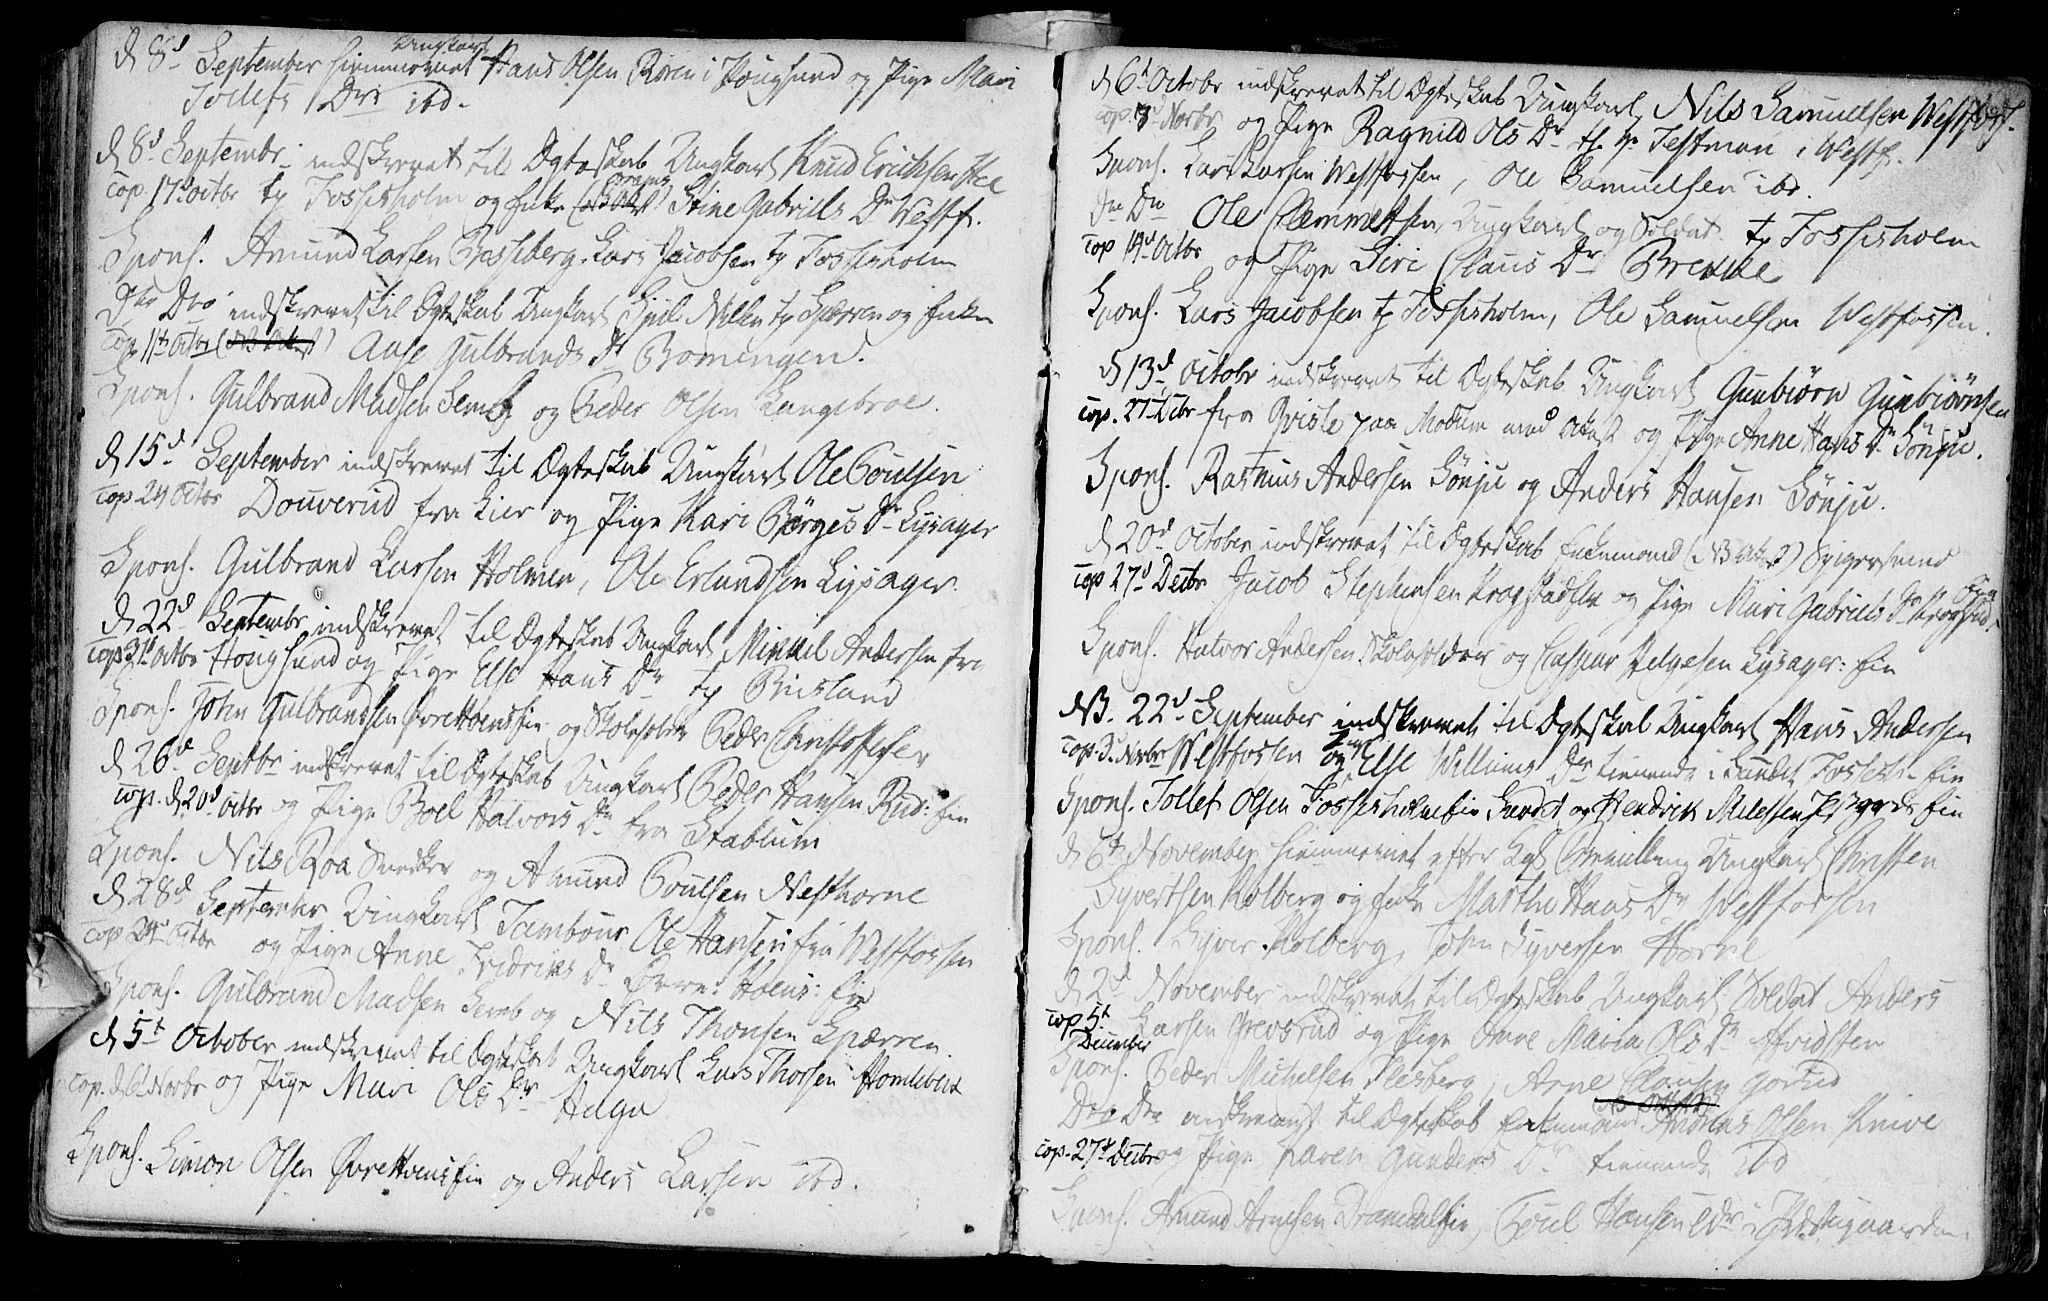 d 8d September hiemmernet Ungkarl Hans Olsen Roren i Hougsund og Pige Mari
Tollefs Dr ibd.
d 8d Septembr indskrevet til Ægteskab Ungkarl Knud Erichsen
cop. 17d Octbr tp Fossesholm og Enke (NB Attest) Stine Gabriels Dr Westf.
Spons. Amund Larsen Basseberg, Lars Jacobsen tp Fossesholm
Dito Dito indskrevet til Ægteskab Ungkarl Nilsen tp Sperren og Enke
cop 11te Octbr (NB Attest) Aase Gulbrands Dr Bomengen.
Spons. Gulbrand Madsen Semb og Peder Olsen Langebroe.
d 15d September indskrevet til Ægteskab Ungkarl Ole Poulsen
cop 24 Octbr Douverud fra Lier og Pige Kari Børges Dr Lysager
Spons. Gulbrand Larsen Holmen, Ole Erlandsen Lysager.
d 22d Septembr indskrevet til Ægteskab Ungkarl Mikkel Andersen fra
cop 31d Octbr Hougsund og Pige Else Hans Dr tp
Spons. John Gulbrandsen Øvre Hoensfin og Skoleholder Peder Christoffersen
d 26d Septbr indskrevet til Ægteskab Ungkarl Peder Hansen Rud: fin
cop. d 20d Octbr og Pige Boel Halvors Dr fra Stablum
Spons. Nils Roa Snedker og Amund Poulsen Nesthorne
d 28d September Ungkarl Tambour Ole Hansen fra Westfossen
cop 24d Octbr og Pige Anne Fredriks Dr Øvre: Hoens: fin
Spons. Gulbrand Madsen Semb og Nils Thonsen Sperren
d 5t October indskrevet til Ægteskab Ungkarl Lars Thorsen Homleback
cop. d 6t Novbr og Pige Mari Ols Dr Haga
Spons. Simon Olsen Øvre Hoensfin og Anders Larsen ibd.
d 6t Octobr indskrevet til Ægteskab Ungkarl Nils Samuelsen Westfoss.
cop. 3d Novbr og Pige Ragnild Ols Dr Testman i Westf.
Spons. Lars Larsen Westfossen, Ole Samuelsen ibd.
Dn Dn Ole Clemmetsen, Ungkarl og Soldat tp Fossesholm
cop 14d Octbr og Pige Siri Claus Dr Brekke
Spons. Lars Jacobsen tp Fossesholm, Ole Samuelsen Westfossen.
d 13d Octobr indskrevet til Ægteskab Ungkarl Gunbiørn Gunbiørnsen
cop. 27 Decbr fra Qvisle paa Modum med Attest og Pige Anne Hans Dr Sønju.
Spons. Rasmus Andersen Sønju og Anders Hansen Sønju.
d 20d October indskrevet til Ægteskab Enkemand (NB Attest) Spigersmed
cop 27d Decbr Jacob Stephensen Krogstadelv og Pige Mari Gabriels Dr Hougsund.
Spons. Halvor Andersen Skoleholder og Caspar Helgesen Lysager: fin
NB. 22d September indskrevet til Ægteskab Ungkarl Hans Andersen
cop. 3. Novbr Westfossen og Pige Else Willums Dr tienende i Sundet Fosses: fin
Spons. Tollef Olsen Fossesholmfin Sundet og Hendrik fin
d 6te November hiemmernet efter Kgl Bevilling Ungkarl Christen
Syvertsen Kolberg og Enke Marthe Hans Dr Westfossen
Spons. Syver Kolberg, John Syversen Horne
d 2d November indskrevet til Ægteskab Ungkarl Soldat Anders
cop 5t Larsen Grevsrud og Pige Anne Maria Ols Dr
December
Spons. Peder Michelsen Flesberg, Arne Clausen
Dito Dito indskrevet til Ægteskab Enkemand Thomas Olsen Knive
cop. 27d Decbr og Pige Karen Gunders Dr tienende ibd
Spons. Amund Arnesen Dramdalfin, Poul Hansen i Præstegaarden.